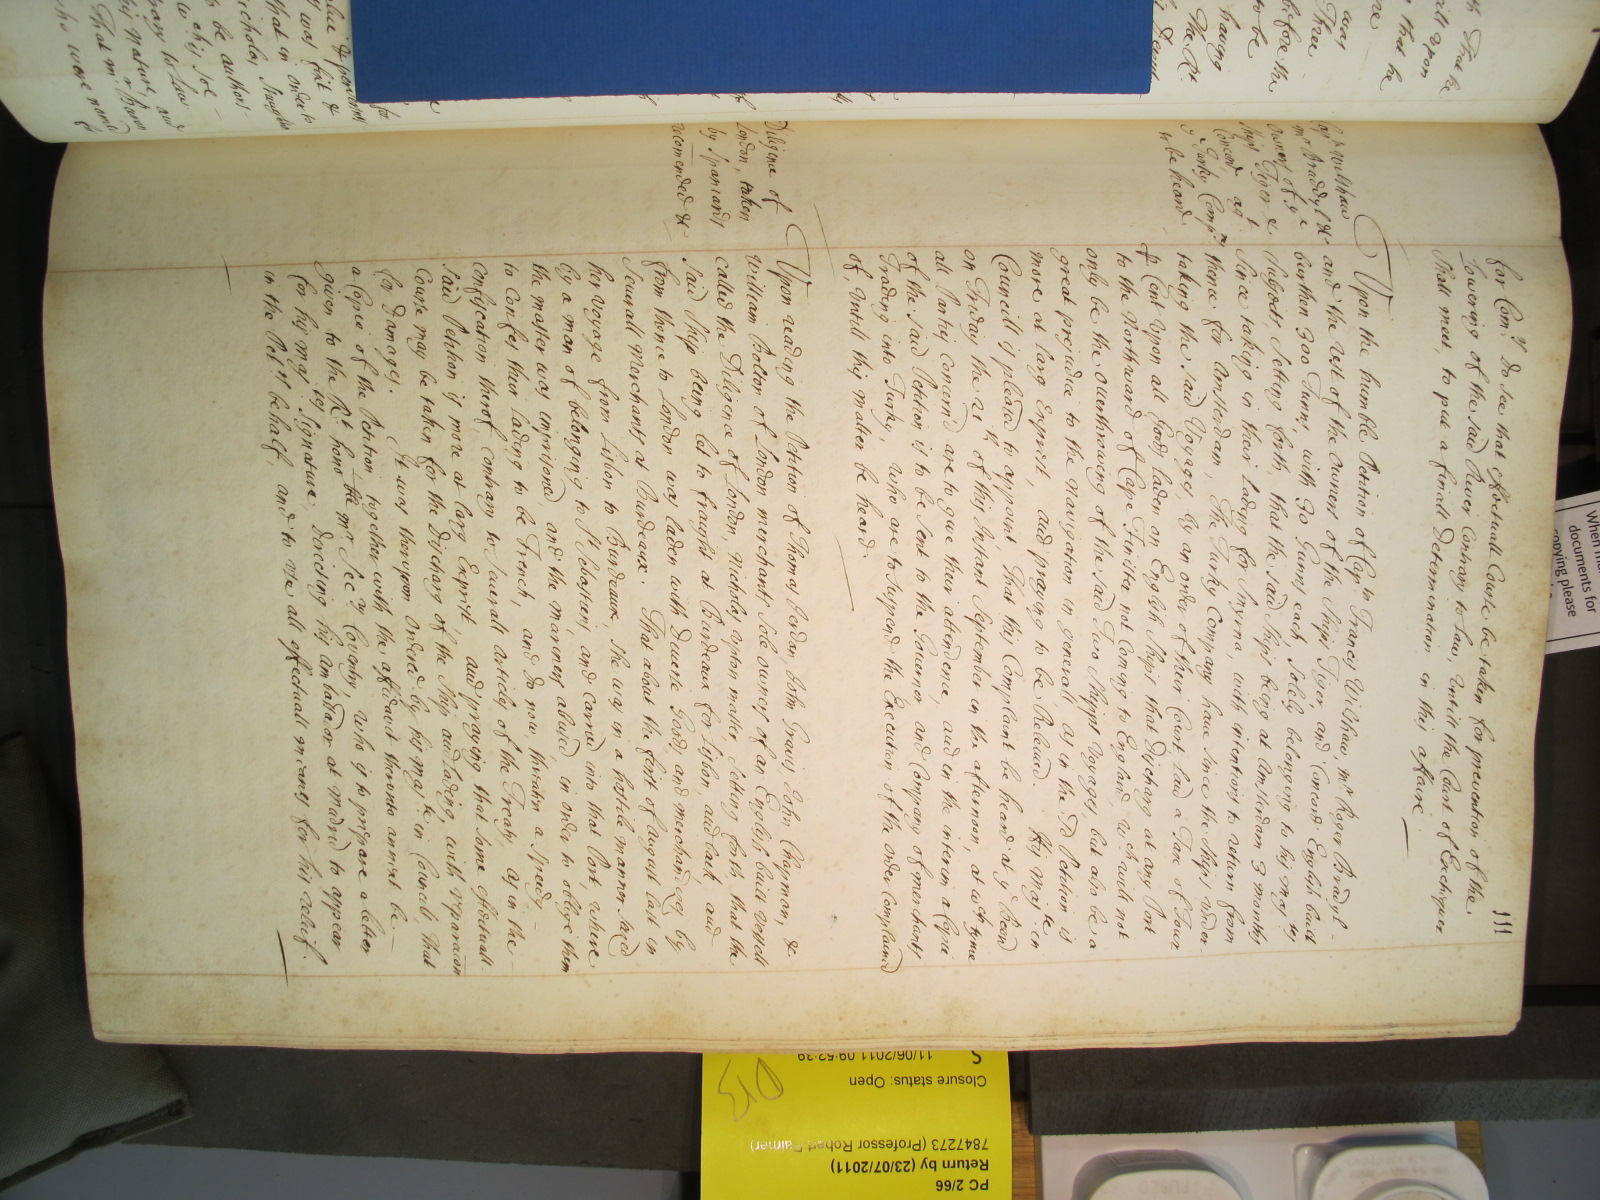 111
for Com:rs do see that effectuall Course be taken for prevention of the
Lowering of the said River Contrary to law, Untill the Court of Exchequer
shall meet, to put a finall Determination in this affaire.
Cap: Wilshaw
mr Bradyl &c
Owners of ye
ships Tiger &
Concord agt
ye Turky Compa
to be heard
Upon the humble Petition of Cap:n Francis Wilshaw, mr Roger Bradyl -
and the rest of the owners of the Ships Tiger, and Concord English built
burthen 300 Tunns, with 30 Gunns each, Solely belonging to his Ma:tys
subjects Setting forth, that the said Ships being at Amsterdam 3 months
Since takeing in their Ladeing for Smyrna, with intentions to return from
thence for Amsterdam, The Turky Company have since the Ships under
taking the said Voyages, by an order of their Court laid a Tax of Four
p Cent upon all Goods laden on English Ships that discharg at any Port
to the Northward of Cape Finister not Coming to England, wch will not
only be the overthrowing of the said Two Shipps Voyages, but also be a
great prejudice to the Navigation in generall as in the sd Petition is
more at larg Exprest, and praying to be Releived. His Maj:te in
Councill is pleased to appoint, that this Complaint be heard at ye Board
on Friday the 21th of this Instant September in the afternoon, at wch tyme
all Parties concernd are to give their attendance, and in the interim a Copie
of the said Petition is to be sent to the Governor, and Company of merchants
Trading into Turky, who are to suspend the Execution of the order Complained
of, Untill this matter be heard.
Diligence of
London, taken
by Spaniards
recomended &c
Upon reading the Petition of Thomas Jordan, John Gravis, John Chapman, &
William Bolton of London merchants Sole owners of an English built vessell
called the Diligence of London, Nicholas Upton master, Setting forth, that the
said Ship being let to fraight at Burdeaux for Lisbon, and back, and
from thence to London was laden with Diverse Goods, and merchandizes by
Severall Merchants at Burdeaux. That about the first of August last in
her Voyage from Lisbon to Burdeaux She was in a hostile manner seized
by a man of belonging to St Sebastien, and carried into that Port, where
the master was imprisoned, and the mariners abused in order to oblige them
to Confess their lading to be French, and do now, threaten a speedy -
Confiscation therof contrary to severall articles of the Treaty, as in the -
said Petition is more at larg Exprest, and praying that some effectuall
Course may be taken for the Discharg of the Ship and lading, with reparacon
for Damages. It was therupon Ordered by his Maj:te in Councill, that
a Copie of the Petition together with the affidavit therunto annext be -
given to the Rt hono:ble mr Sec:ry Coventry, who is to prepare a letter
for his Ma:tys Signature, directing his Ambassador at Madrid to appear
in the Pet:rs behalf, and to use all effectuall meanes for his relief.
When
documents for
copying please
PC 2/66
Return by (23/07/2011)
7847273 (Professor Robert Palmer)
Closure status: Open
11/06/2011 09:52:39
S